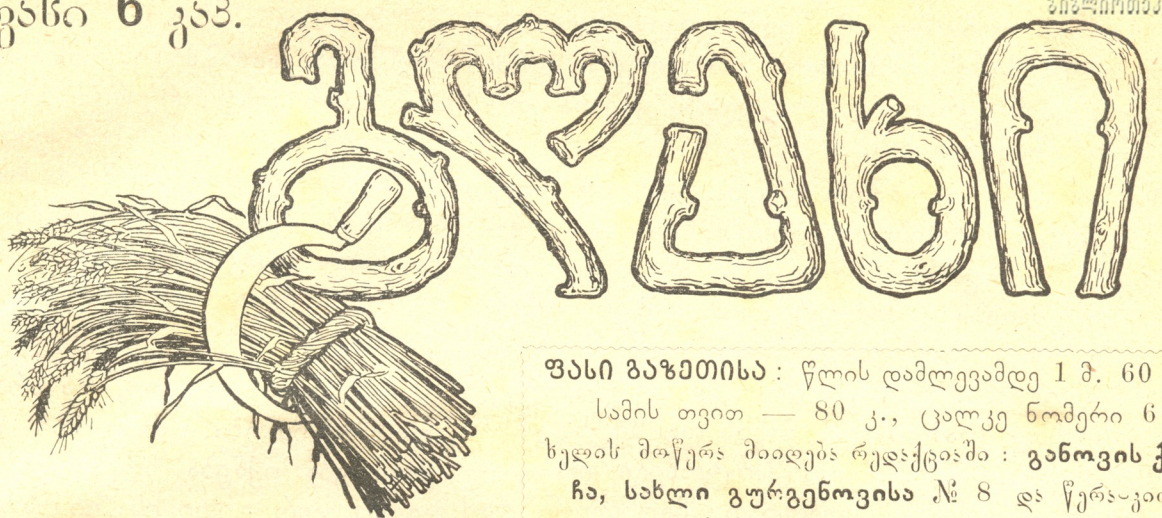 ფასი 6 კაპ.
გლეხი
ფასი გაზეთისა: წლის დამლევამდე 1 მ. 60
სამის თვით — 80 კ., ცალკე ნომერი 6
ხელის მოწერა მიიღება რედაქციაში: განოვის
ჩა, სახლი გურგენოვისა № 8 და